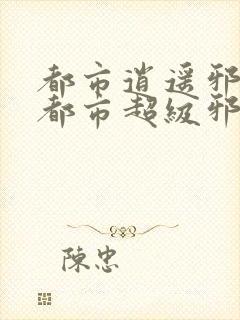 都市逍遥邪
都市超级邪
陳忠